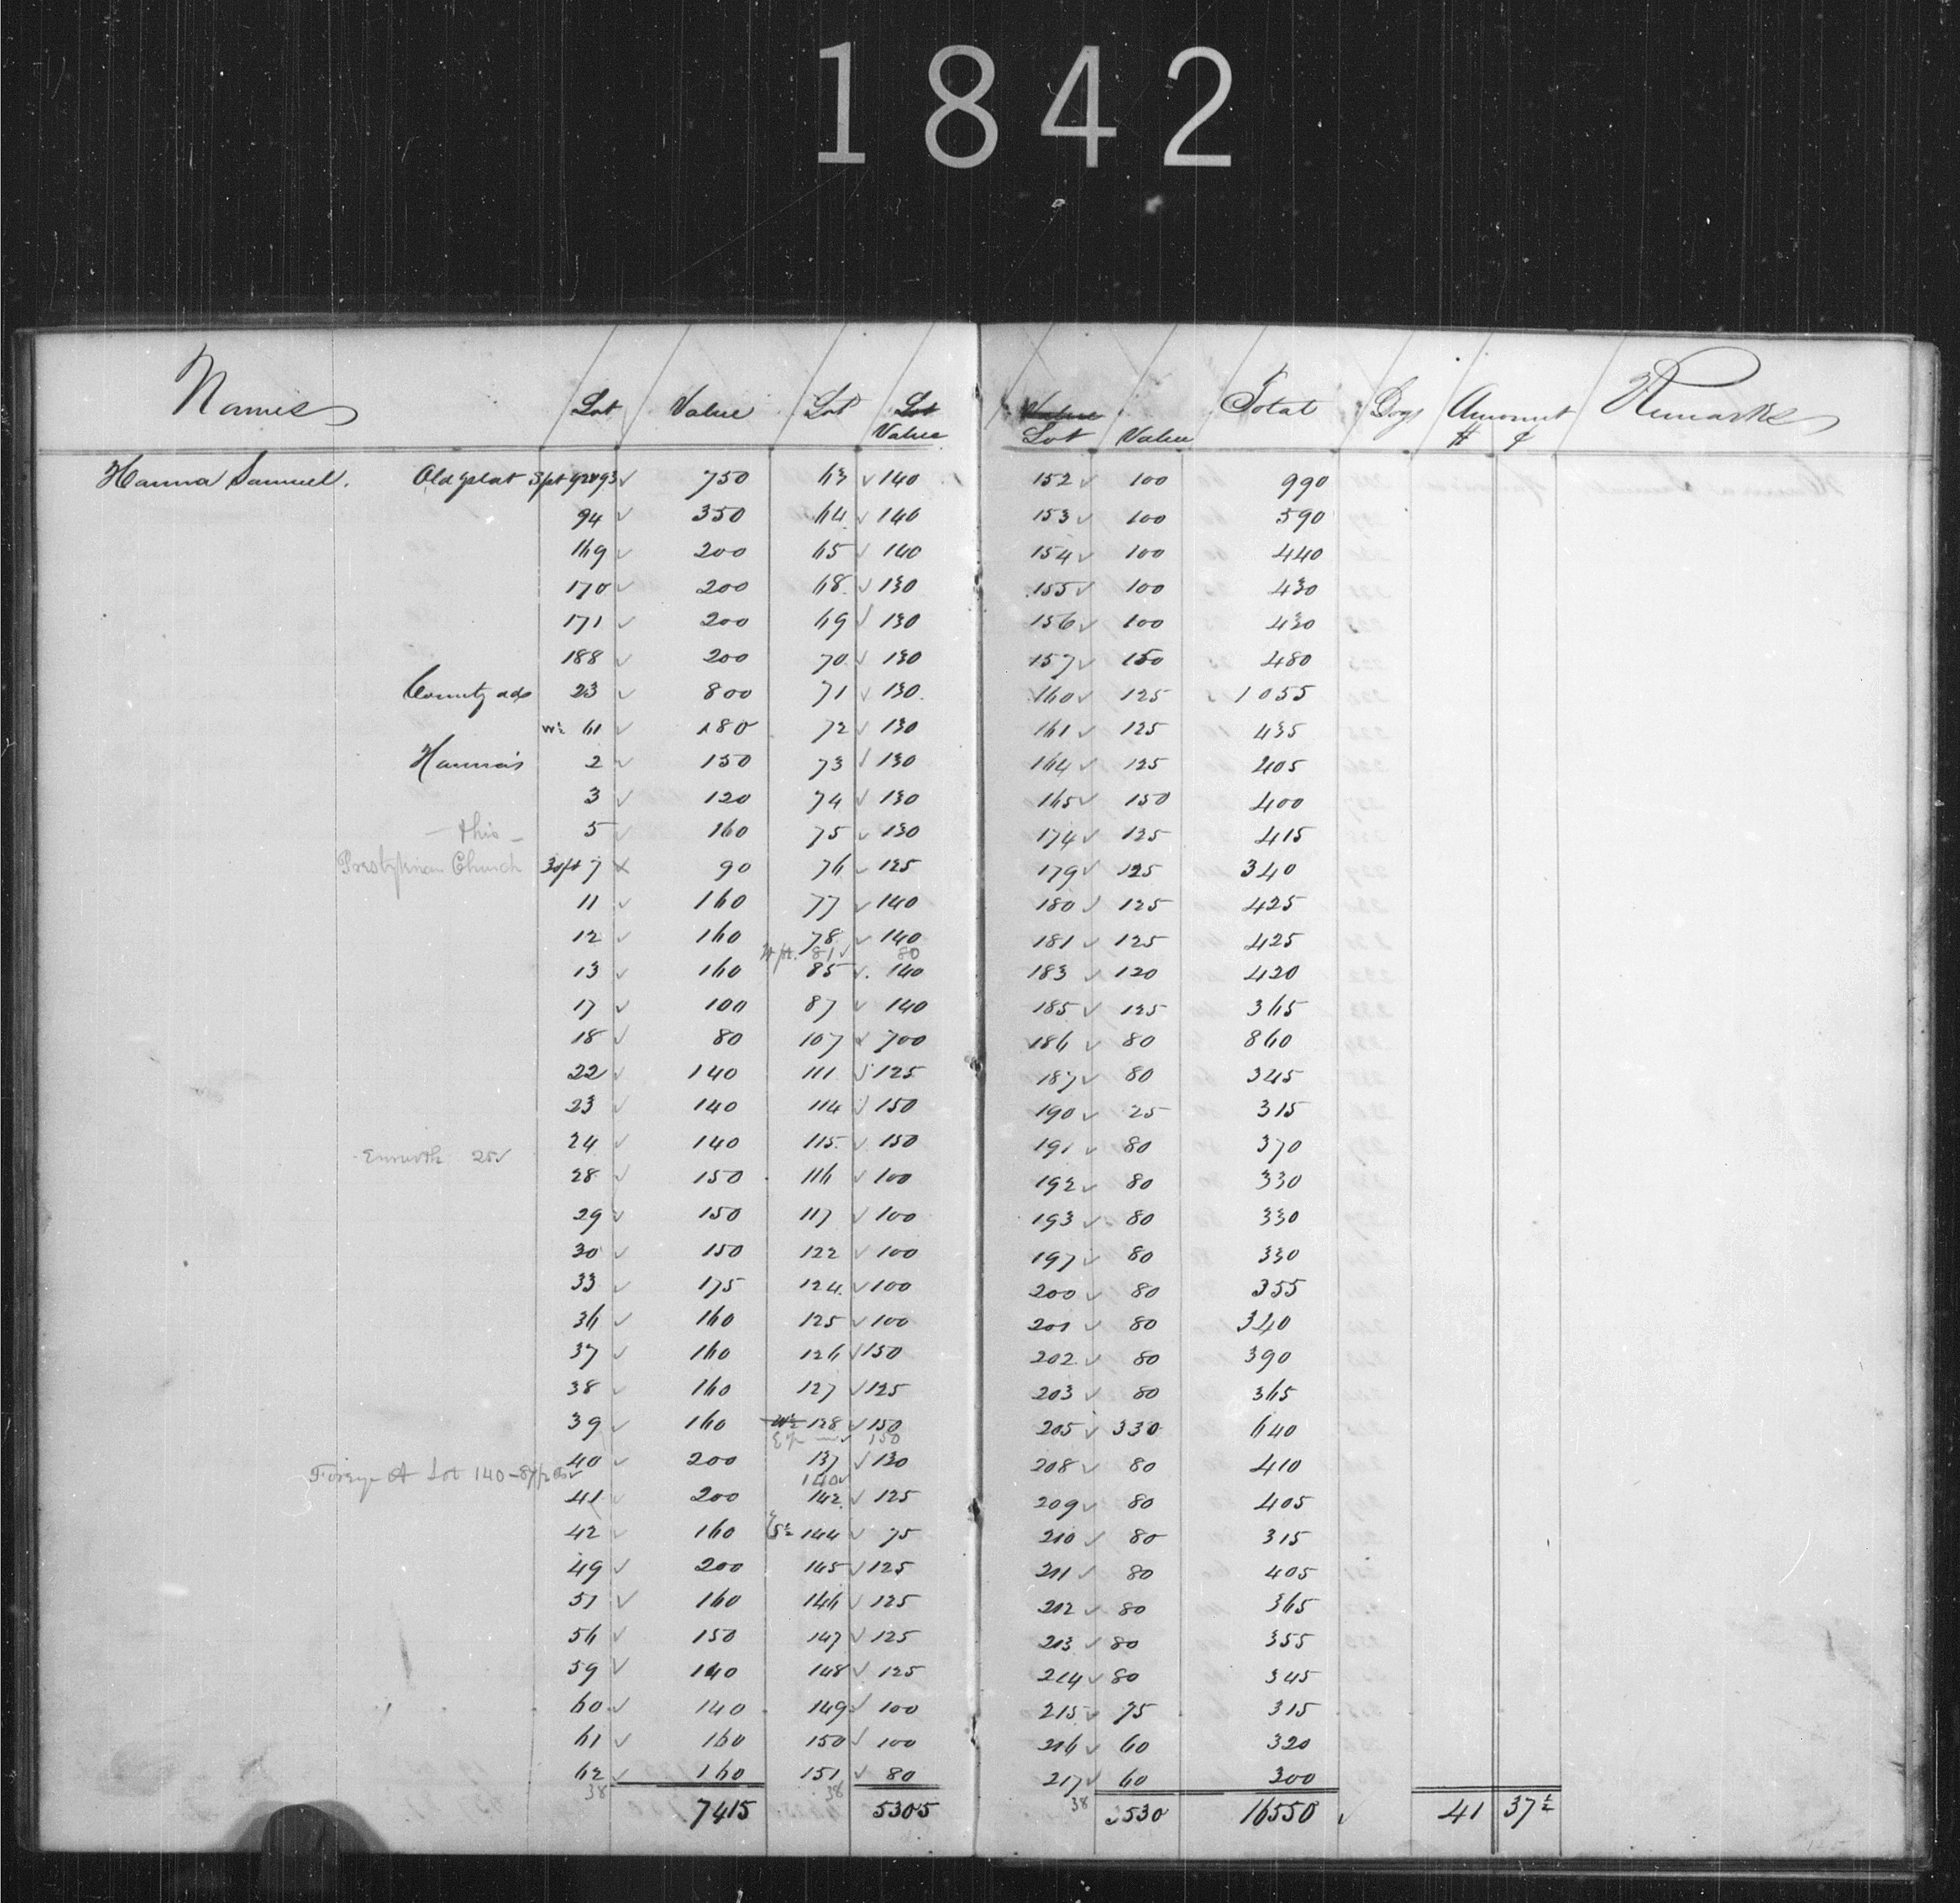 1842
Names Lot Value Lot Lot Value Value Lot Value Total Dogs Amount $ ¢ Remarks
Hanna Samuel. Old plat 3pt 92&93 ✓ 750 63 ✓ 140 152 ✓ 100 990
94 ✓ 350 64 ✓ 140 153 ✓ 100 590
169 ✓ 200 65 ✓ 140 154 ✓ 100 440
170 ✓ 200 68 ✓ 130 155 ✓ 100 430
171 ✓ 200 69 ✓ 130 156 ✓ 100 430
188 ✓ 200 70 ✓ 130 157 ✓ 150 480
County ad 23 ✓ 800 71 ✓ 130 160 ✓ 125 1055
W½ 61 ✓ 180 72 ✓ 130 161 ✓ 125 435
Hanna's 2 ✓ 150 73 ✓ 130 164 ✓ 125 405
3 ✓ 120 74 ✓ 130 165 ✓ 150 400
this 5 ✓ 160 75 ✓ 130 174 ✓ 125 415
Presbyterian Church 30ft 7 × 90 76 ✓ 125 179 ✓ 125 340
11 ✓ 160 77 ✓ 140 180 ✓ 125 425
12 ✓ 160 78 ✓ 140 181 ✓ 125 425
W pt. 81 ✓ 80
13 ✓ 160 85 ✓ 140 183 ✓ 120 420
17 ✓ 100 87 ✓ 140 185 ✓ 125 365
18 ✓ 80 107 ✓ 700 186 ✓ 80 860
22 ✓ 140 111 ✓ 125 187 ✓ 80 345
23 ✓ 140 114 ✓ 150 190 ✓ 25 315
24 ✓ 140 115 ✓ 150 191 ✓ 80 370
25 ✓
28 ✓ 150 116 ✓ 100 192 ✓ 80 330
29 ✓ 150 117 ✓ 100 193 ✓ 80 330
30 ✓ 150 122 ✓ 100 197 ✓ 80 330
33 ✓ 175 124 ✓ 100 200 ✓ 80 355
36 ✓ 160 125 ✓ 100 201 ✓ 80 340
37 ✓ 160 126 ✓ 150 202 ✓ 80 390
38 ✓ 160 127 ✓ 125 203 ✓ 80 365
39 ✓ 160 W½ 128 ✓ 150 205 ✓ 330 640
150
40 ✓ 200 137 ✓ 130 208 ✓ 80 410
Lot 140 140 ✓
41 ✓ 200 142 ✓ 125 209 ✓ 80 405
42 ✓ 160 S½ 144 ✓ 75 210 ✓ 80 315
49 ✓ 200 145 ✓ 125 211 ✓ 80 405
51 ✓ 160 146 ✓ 125 212 ✓ 80 365
56 ✓ 150 147 ✓ 125 213 ✓ 80 355
59 ✓ 140 148 ✓ 125 214 ✓ 80 345
60 ✓ 140 149 ✓ 100 215 ✓ 75 315
61 ✓ 160 150 ✓ 100 216 ✓ 60 320
62 ✓ 160 151 ✓ 80 217 ✓ 60 300
38 7415 38 5305 38 3530 16550 ✓ 41 37½